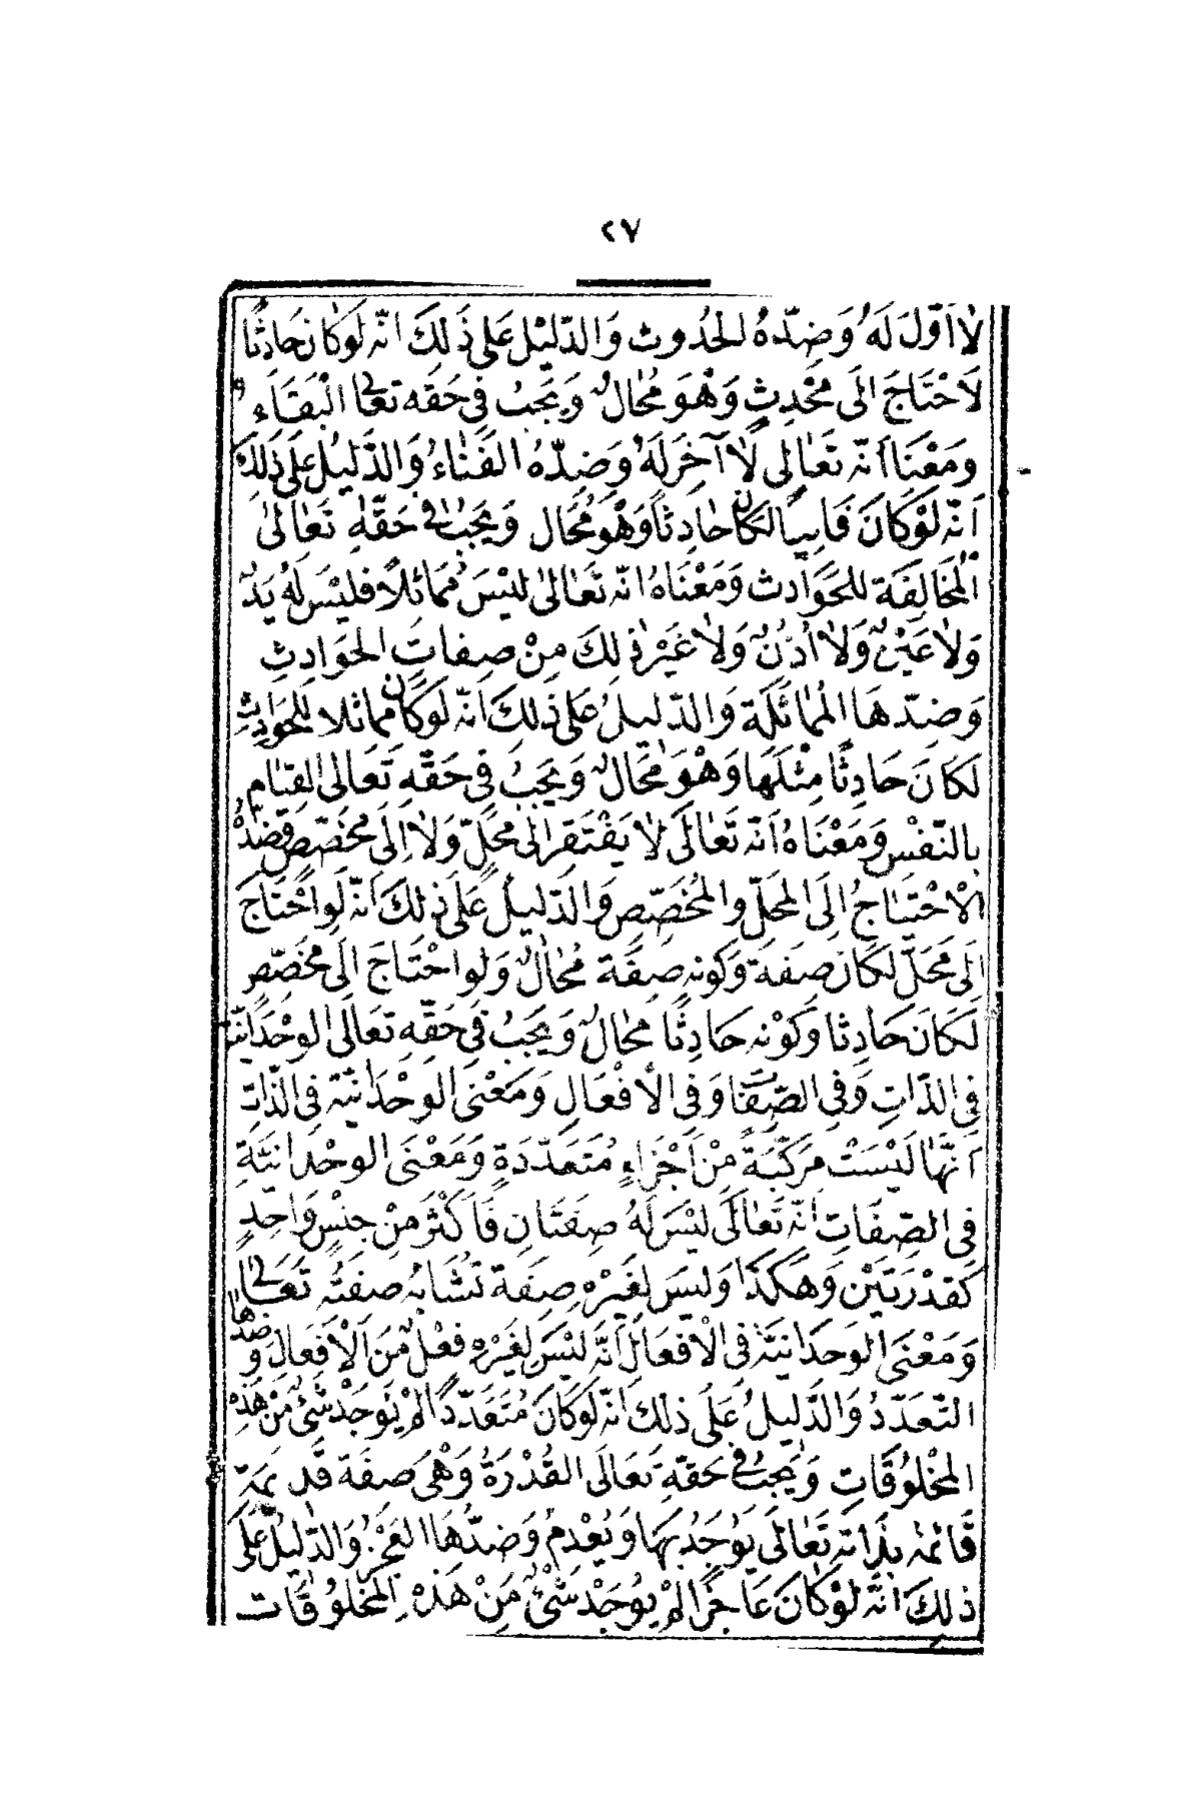 ٢٧
لَا اَوَّلَ لَهُ وَضِدُّهُ الحُدُوث وَالدَّلِيْل عَلى ذَلِكَ انّه لَوكَان حَادِثًا
لَاحْتَاجَ الَى مُحْدِثٍ وَهْوَ مُحَالٌ وَيَجبُ فِى حَقّه تعَالى الْبَقَاَء
وَمَعْنَاه اَنّه تَعَالى لَا آخَرَ لَهُ وَضِدُّهُ الفَنَاءُ وَالدَّلِيلُ عَلى ذَلِكَ
اَنّه لَوْكَانَ فَانِيًا لكَانَ حَادِثاً وَهْوَ مُحَال وَيَجبُ فى حَقّهِ تَعَالىٰ
المُخَالِفَة للحَوَادث وَمَعْنَاهُ انّه تَعَالىٰ ليْسَ مُمَاثلًا فليْسَ لهُ يَدٌ
وَلَا عَيْنٌ وَلَا اُذُنٌ وَلَا غَيْرُ ذلِكَ مِنْ صِفَاتِ الحَوَادِثِ
وَضدّهَا المُمَاثَلَة وَالدّليلُ عَلى ذلكَ انّه لَوكَانَ مماثلا لِلحَوَادِثِ
لكَانَ حَادِثًا مِثْلَهَا وَهْوَ مُحَالٌ وَيَجبُ فِى حَقّهِ تَعَالى القِيَام
بِالنّفْسِ وَمَعْنَاهُ اَنّه تَعَالَى لَا يَفْتَقِرُ الى محَلٍّ وَلَا اِلَى مُخَصّصٍ وَضدّهُ
الْاحْتيَاجُ الَى المحَلّ والمُخَصِّصِ وَالدّلِيلُ عَلَى ذلكَ انّه لَوِاحْتَاجَ
الَى مَحَلّ لكَانَ صِفَة وَكَونه صِفَة مُحَالٌ وَلواحْتَاجَ الَى مُخَصّص
لَكَانَ حَادِثا وَكَوْنه حَادِثًا محَالٌ وَيَجبُ فِى حَقّهِ تعَالَى الوحْدَانيَّة
فِى الذّاتِ وَفِى الصِّفَات وَفِى الْافْعَالِ وَمَعْنَى الوحْدَانيّة فِى الذّاتِ
اَنّهَا لَيْسَتْ مرَكّبَةً مِنْ اَجْزَاءٍ مُتَعَدّدَةٍ وَمَعْنَى الوحْدَانيَّةِ
فِى الصِّفَاتِ انّه تَعَالَى ليْسَ لَهُ صِفَتَانِ فَاَكْثَر مِنْ جِنْسٍ وَاحِدٍ
كَقدْرَتَيْن وَهَكذَا وَلَيسَ لغَيْرِهِ صِفَة تُشَابهُ صفَتَهُ تَعَالى
وَمَعْنَى الوَحدَانيّة فِى الْاَفعَالِ اَنّه لَيْسَ لِغَيْرِهِ فِعْلٌ مِنَ الْاَفعَالِ وَضدّهَا
التّعَدّدُ وَالدَّليلُ عَلَى ذلكَ انّه لَوكَانَ مُتَعَدّدًا لَمْ يُوجَدْ شَئٌ مِنْ هَذِهِ
المَخْلُوقَاتِ وَيَجبُ فِى حَقّهِ تعَالَى القُدْرَةُ وَهْىَ صفَة قَدِيمَة
قَائمَة بذَاتهِ تَعَالَى يُوجَدُ بِهَا وَيُعْدِمُ وَضدُّهَا العَجْزُ وَالدَّلِيلُ عَلَى
ذلكَ انّهُ لَوْكَانَ عَاجزًا لَمْ يُوجَدْ شَئٌ مِنْ هَذهِ المَخلُوقَات